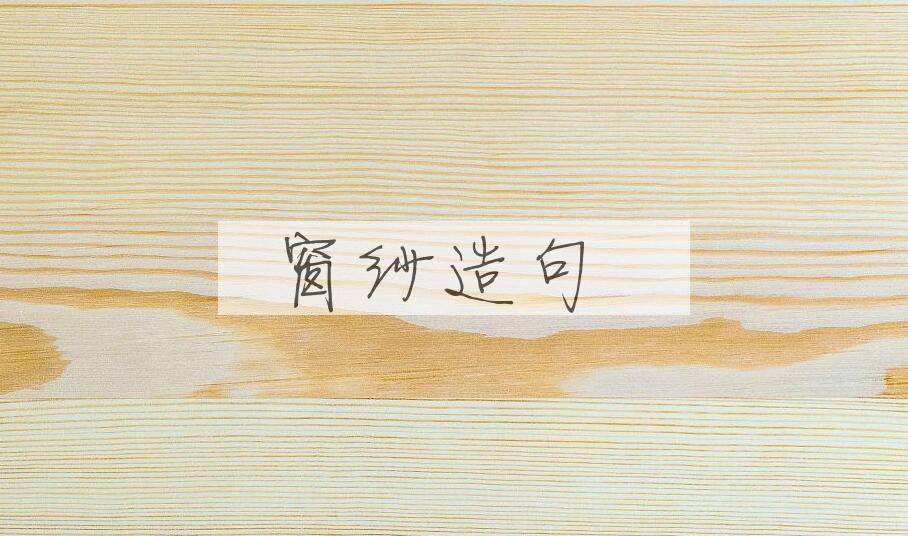 窗纱造句